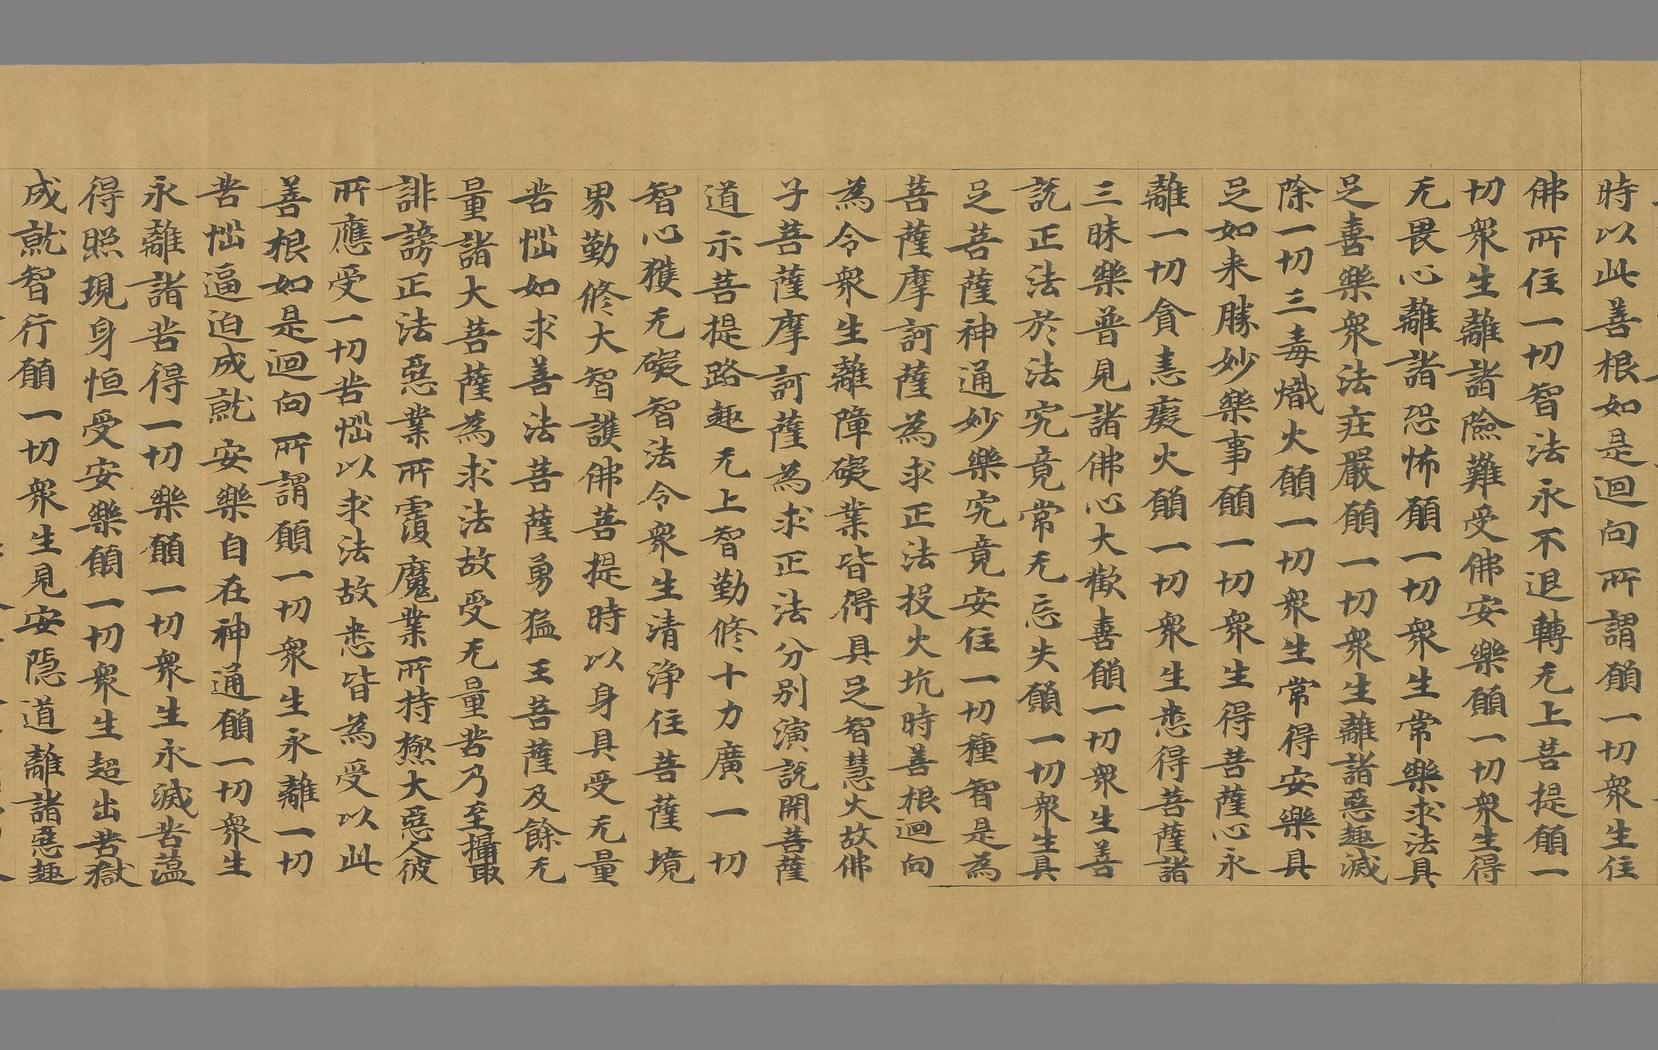 時以此善根如是迴向所謂願一切衆生住
佛所住一切智法永不退轉无上菩提願一
切衆生離諸險難受佛安樂願一切衆生得
无畏心離諸恐怖願一切衆生常樂求法具
足喜樂衆法莊嚴願一切衆生離諸惡趣滅
除一切三毒熾火願一切衆生常得安樂具
足如来勝妙樂事願一切衆生得菩薩心永
離一切貪恚癡火願一切衆生悉得菩薩諸
三昧樂普見諸佛心大歡喜願一切衆生善
說正法於法究竟常无忘失願一切衆生具
足菩薩神通妙樂究竟安住一切種智是為
菩薩摩訶薩為求正法投火坑時善根迴向
為令衆生離障礙業皆得具足智慧火故佛
子菩薩摩訶薩為求正法分別演說開菩薩
道示菩提路趣无上智勤修十力廣一切
智心獲无礙智法令衆生清淨住菩薩境
界勤修大智護佛菩提時以身具受无量
苦惱如求善法菩薩勇猛王菩薩及餘无
量諸大菩薩為求法故受无量苦乃至攝取
誹謗正法惡業所覆魔業所持極大惡人彼
所應受一切苦惱以求法故悉皆為受以此
善根如是迴向所謂願一切衆生永離一切
苦惱逼迫成就安樂自在神通願一切衆生
永離諸苦得一切樂願一切衆生永滅苦蘊
得照現身恒受安樂願一切衆生超出苦獄
成就智行願一切衆生見安隱道離諸惡趣